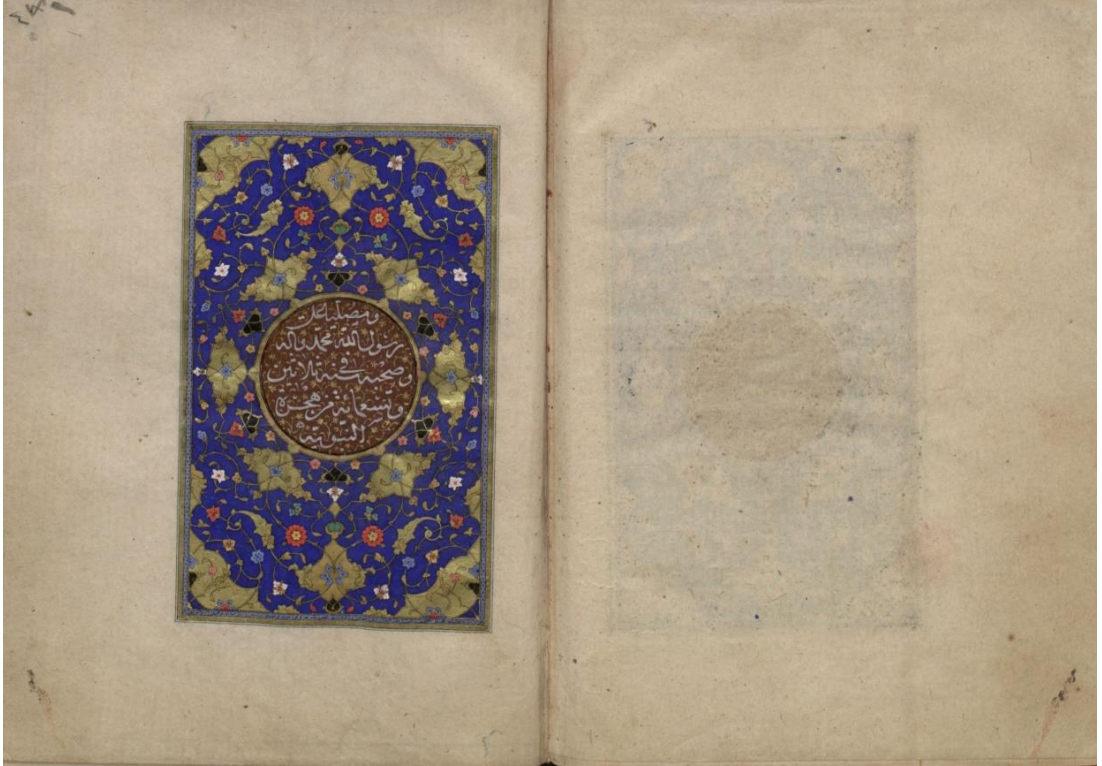 ومصليا على
رسول الله محمد وآله
وصحبه في سنة ثلاثين
وتسعمائة من هجرة
النبوية